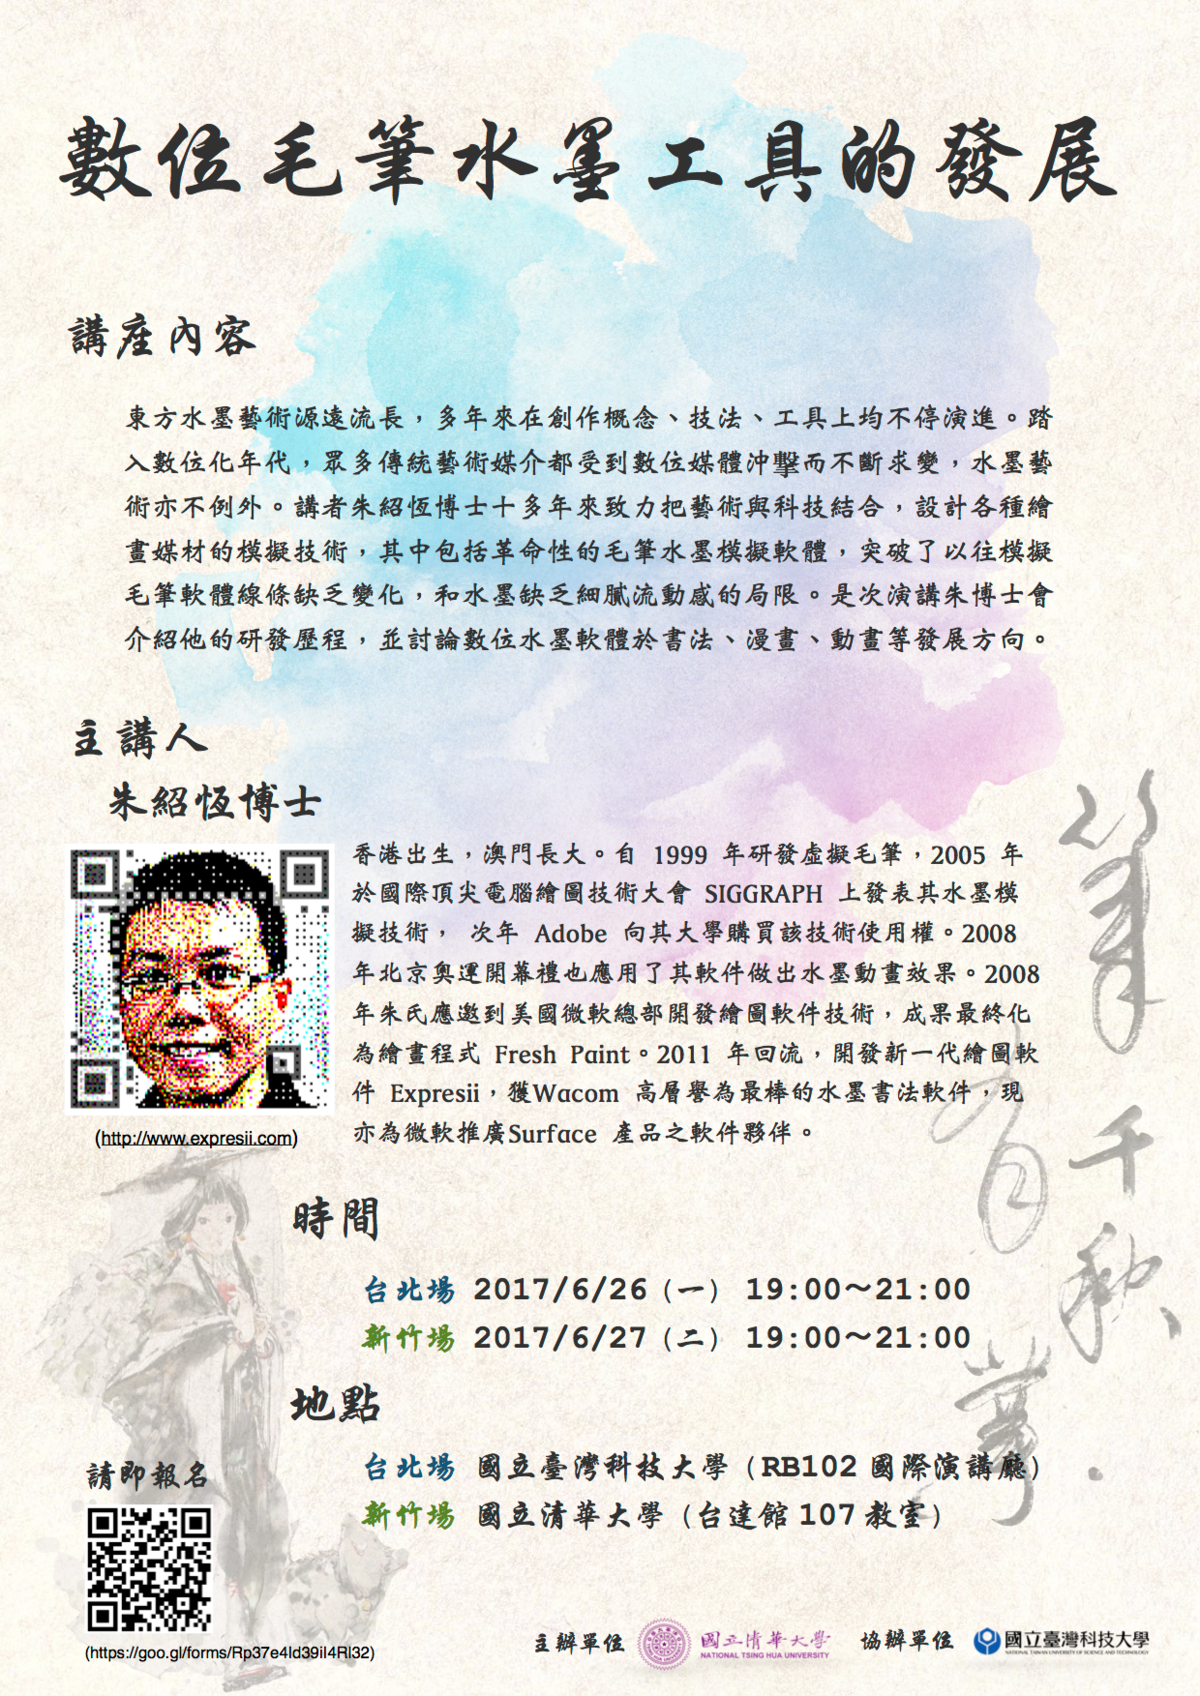 數位毛筆水墨工具的發展
講座內容
東方水墨藝術源遠流長，多年來在創作概念、技法、工具上均不停演進。踏
入數位化年代，眾多傳統藝術媒介都受到數位媒體沖擊而不斷求變，水墨藝
術亦不例外。講者朱紹恆博士十多年來致力把藝術與科技結合，設計各種繪
畫媒材的模擬技術，其中包括革命性的毛筆水墨模擬軟體，突破了以往模擬
毛筆軟體線條缺乏變化，和水墨缺乏細膩流動感的局限。是次演講朱博士會
介紹他的研發歷程，並討論數位水墨軟體於書法、漫畫、動畫等發展方向。
主講人
朱紹恆博士
香港出生，澳門長大。自 1999 年研發虛擬毛筆，2005 年
於國際頂尖電腦繪圖技術大會 SIGGRAPH 上發表其水墨模
擬技術， 次年 Adobe 向其大學購買該技術使用權。2008
年北京奧運開幕禮也應用了其軟件做出水墨動畫效果。2008
年朱氏應邀到美國微軟總部開發繪圖軟件技術，成果最終化
為繪畫程式 Fresh Paint。2011 年回流，開發新一代繪圖軟
件 Expresii，獲Wacom 高層譽為最棒的水墨書法軟件，現
亦為微軟推廣Surface 產品之軟件夥伴。
(http://www.expresii.com)
筆
千
秋
有
夢
時間
台北場 2017/6/26（一） 19:00～21:00
新竹場 2017/6/27（二） 19:00～21:00
地點
台北場 國立臺灣科技大學（RB102 國際演講廳）
新竹場 國立清華大學（台達館 107 教室）
請即報名
(https://goo.gl/forms/Rp37e4Id39iI4Rl32)
主辦單位 國立清華大學
NATIONAL TSING HUA UNIVERSITY
協辦單位 國立臺灣科技大學
NATIONAL TAIWAN UNIVERSITY OF SCIENCE AND TECHNOLOGY